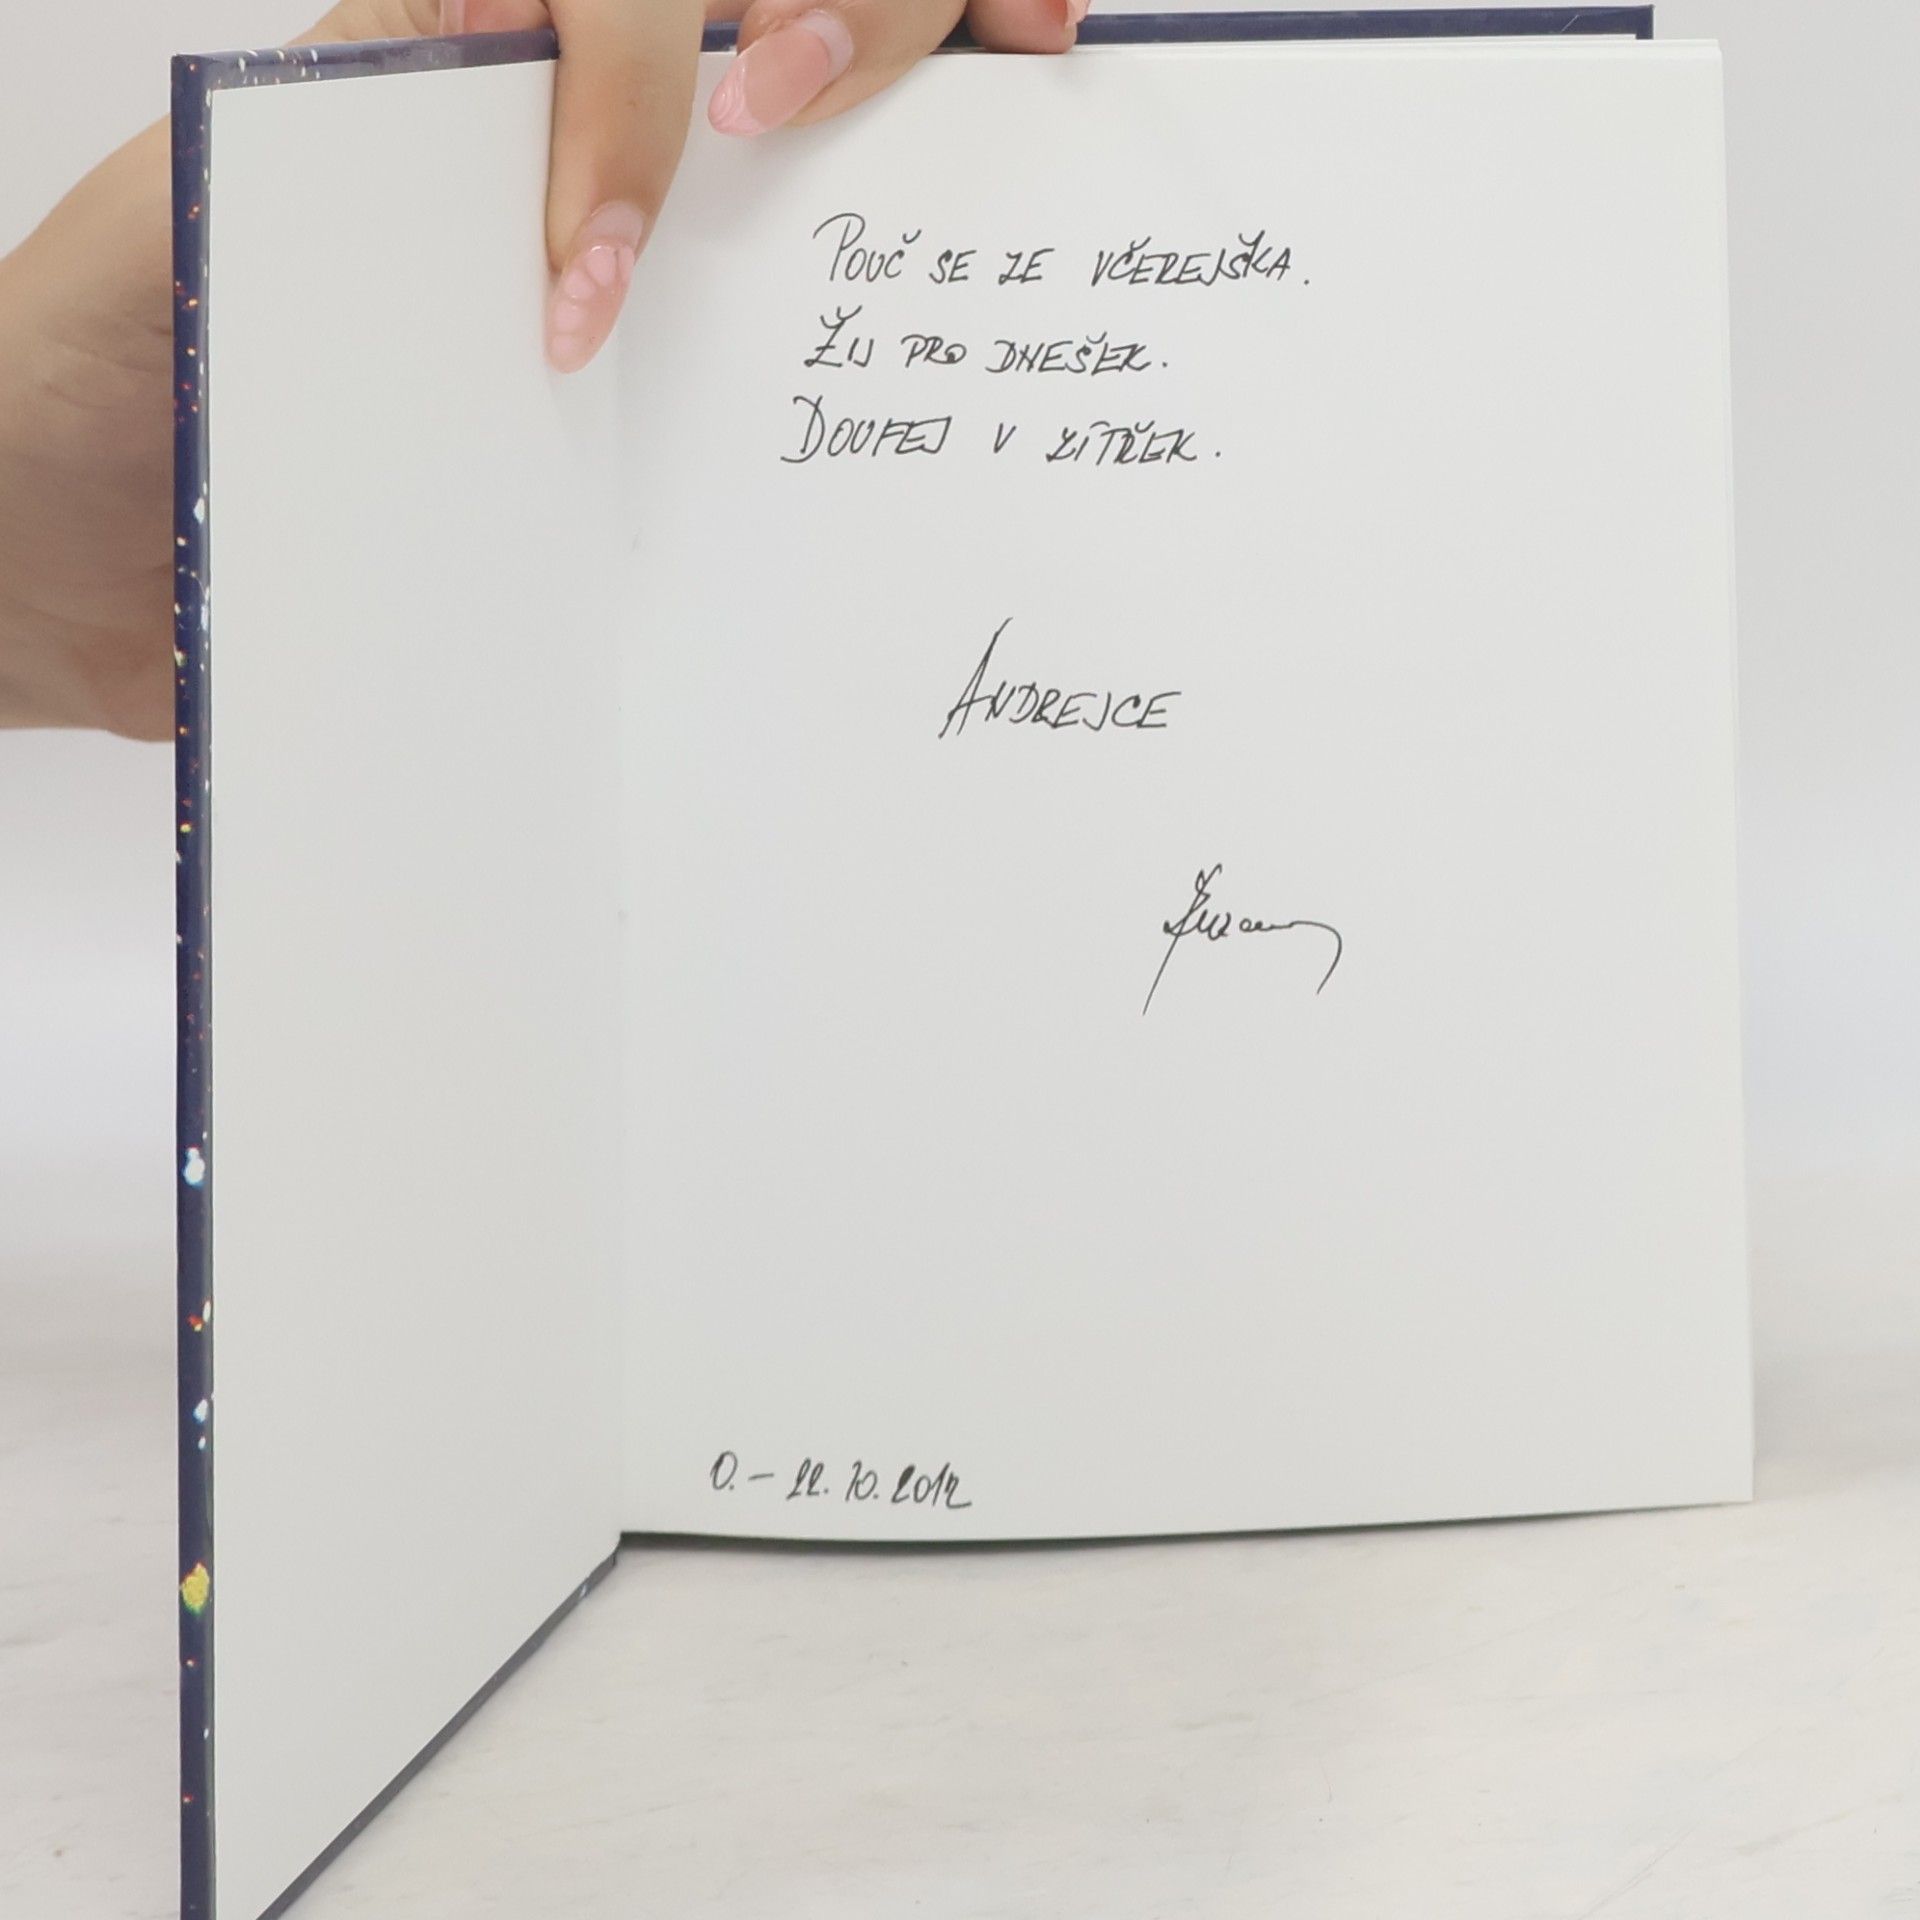 Pouč se ze včerejška.
Žij pro dnešek.
Doufej v zítřek.
Andrejce
O. - 22. 10. 2012